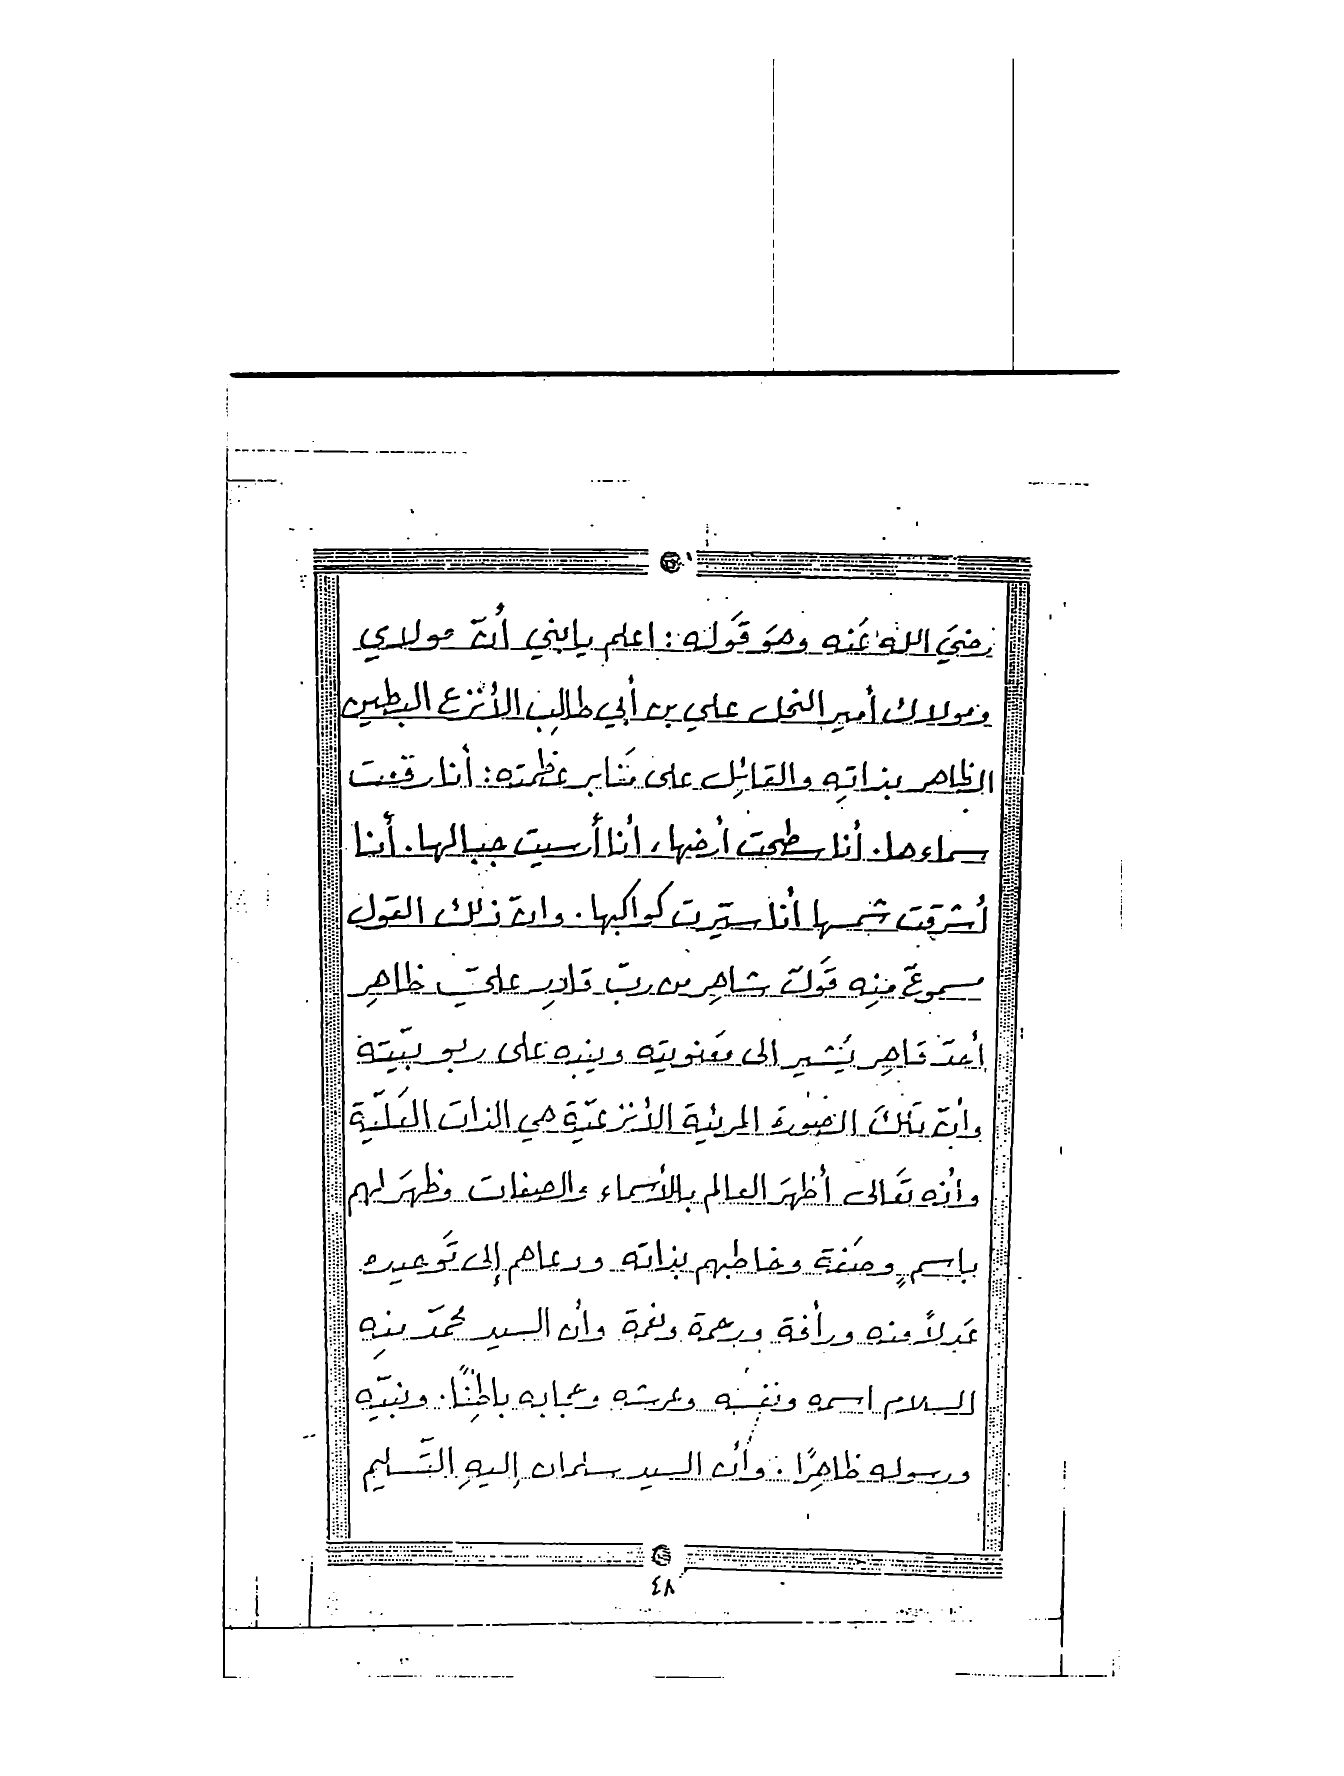 رضيَ الله عَنه وهوَ قَوله: اعلم يابني أنّ مولاي
ومولاك أمير النحل علي بن أبي طالب الأنزع البطين
الظاهر بذاتِه والقائِل على مَنابر عَظمته: أنا رقعت
سماءها. أنا سطحت أرضها، أنا أرسيت جبالها. أنا
أشرقت شمسها أنا سيّرت كواكبها. وانّ ذلك القول
مسموعٌ مِنِه قَولٌ شاهِر من ربّ قادِر عليّ ظاهِر
أحدّ قاهِر يُشير الى مَعنويته وينبه على ربوبيّته
وأنّ تلكَ الصُورة المرئية الأنزعيّة هي الذات العَليّة
وأنه تعَالى أظهرَ العالم بالأسماء والصفات وظهرَ لهم
باسمٍ وصَفة وخاطبهم بذاته ودعاهم إلى تَوحيده
عَدلاً منه ورأفة ورحمة ونعمة وأن السيد محمّد مِنِه
السلام اسمه ونفسَه وعرشه وحجابه باطِنًا. ونبيّه
ورسوله ظاهِرًا. وأن السيد سلمان إليهِ التّسليم
٤٨